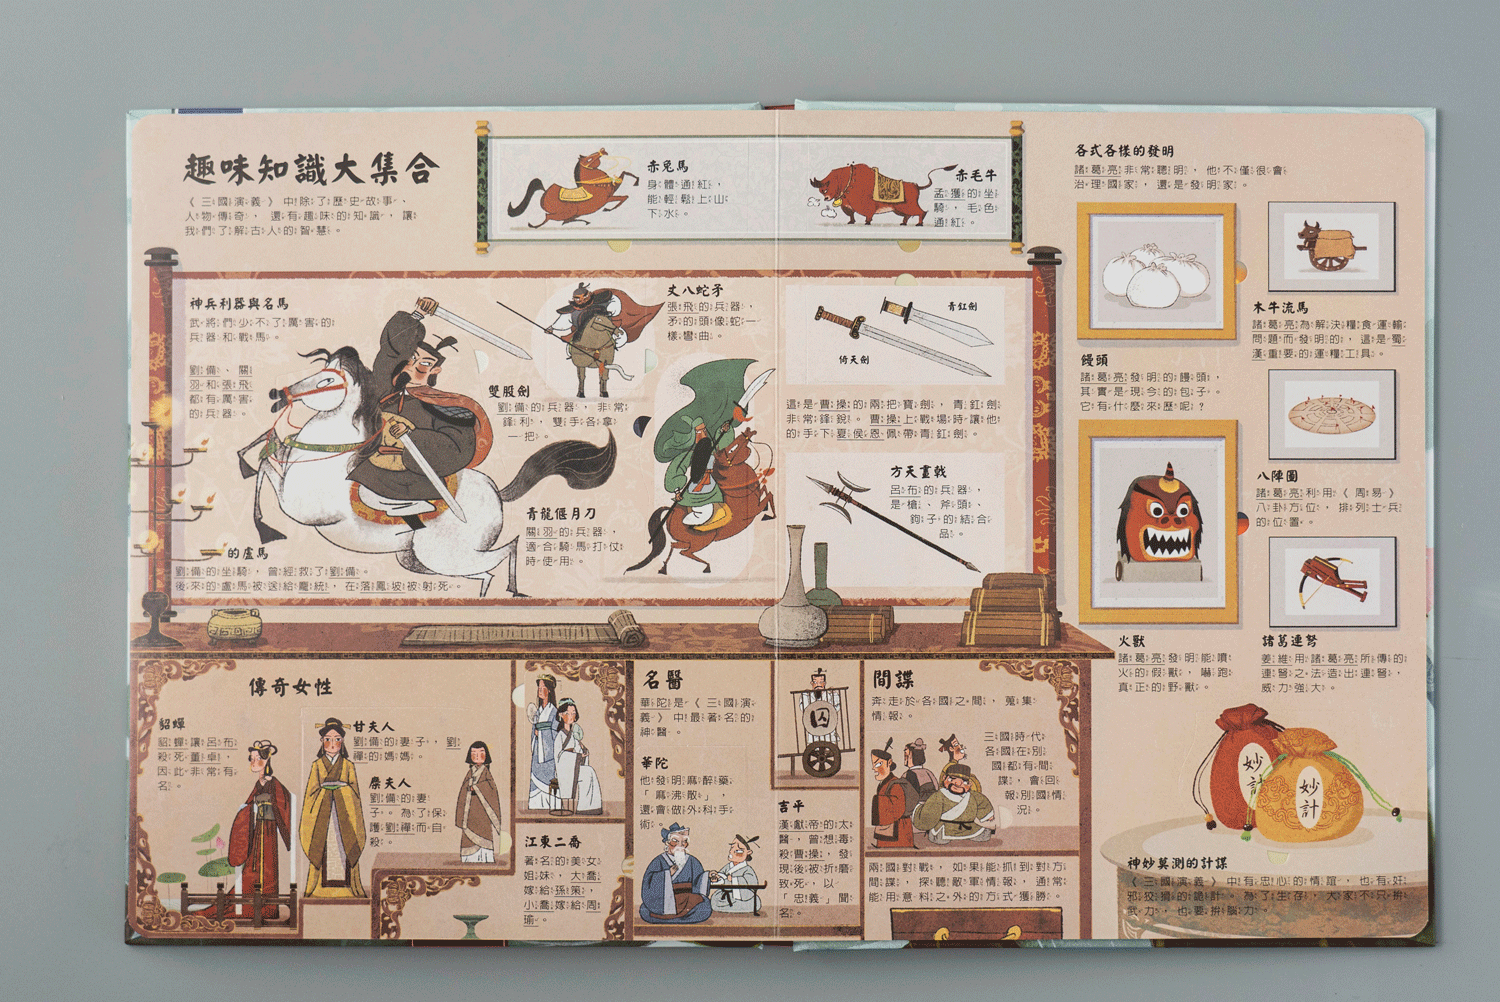 趣味知識大集合
《三國演義》中除了歷史故事、
人物傳奇，還有趣味的知識，讓
我們了解古人的智慧。
赤兔馬
身體通紅，
能輕鬆上山
下水。
赤毛牛
孟獲的坐
騎，毛色
通紅。
神兵利器與名馬
武將們少不了厲害的
兵器和戰馬。
劉備、關
羽和張飛
都有厲害
的兵器。
丈八蛇矛
張飛的兵器，
矛的頭像蛇一
樣彎曲。
雙股劍
劉備的兵器，非常
鋒利，雙手各拿
一把。
青龍偃月刀
關羽的兵器，
適合騎馬打仗
時使用。
的盧馬
劉備的坐騎，曾經救了劉備。
後來的盧馬被送給龐統，在落鳳坡被射死。
青釭劍
倚天劍
這是曹操的兩把寶劍，青釭劍
非常鋒銳。曹操上戰場時讓他
的手下夏侯恩佩帶青釭劍。
方天畫戟
呂布的兵器，
是槍、斧頭、
鉤子的結合
品。
各式各樣的發明
諸葛亮非常聰明，他不僅很會
治理國家，還是發明家。
饅頭
諸葛亮發明的饅頭，
其實是現今的包子。
它有什麼來歷呢？
木牛流馬
諸葛亮為解決糧食運輸
問題而發明的，這是蜀
漢重要的運糧工具。
八陣圖
諸葛亮利用《周易》
八卦方位，排列士兵
的位置。
火獸
諸葛亮發明能噴
火的假獸，嚇跑
真正的野獸。
諸葛連弩
姜維用諸葛亮所傳的
連弩之法造出連弩，
威力強大。
傳奇女性
貂蟬
貂蟬讓呂布
殺死董卓，
因此非常有
名。
甘夫人
劉備的妻子，劉
禪的媽媽。
糜夫人
劉備的妻
子。為了保
護劉禪而自
殺。
江東二喬
著名的美女
姐妹，大喬
嫁給孫策，
小喬嫁給周
瑜。
名醫
華陀是《三國演
義》中最著名的
神醫。
華陀
他發明麻醉藥
「麻沸散」，
還會做外科手
術。
囚
吉平
漢獻帝的太
醫，曾想毒
殺曹操，發
現後被折磨
致死，以
「忠義」聞
名。
間諜
奔走於各國之間，蒐集
情報。
三國時代，
各國在別
國都有間
諜，會回
報別國情
況。
兩國對戰，如果能抓到對方
間諜，探聽敵軍情報，通常
能用意料之外的方式獲勝。
妙
計
妙
計
神妙莫測的計謀
《三國演義》中有忠心的情誼，也有奸
邪狡猾的詭計。為了生存，大家不只拚
武力，也要拚腦力。